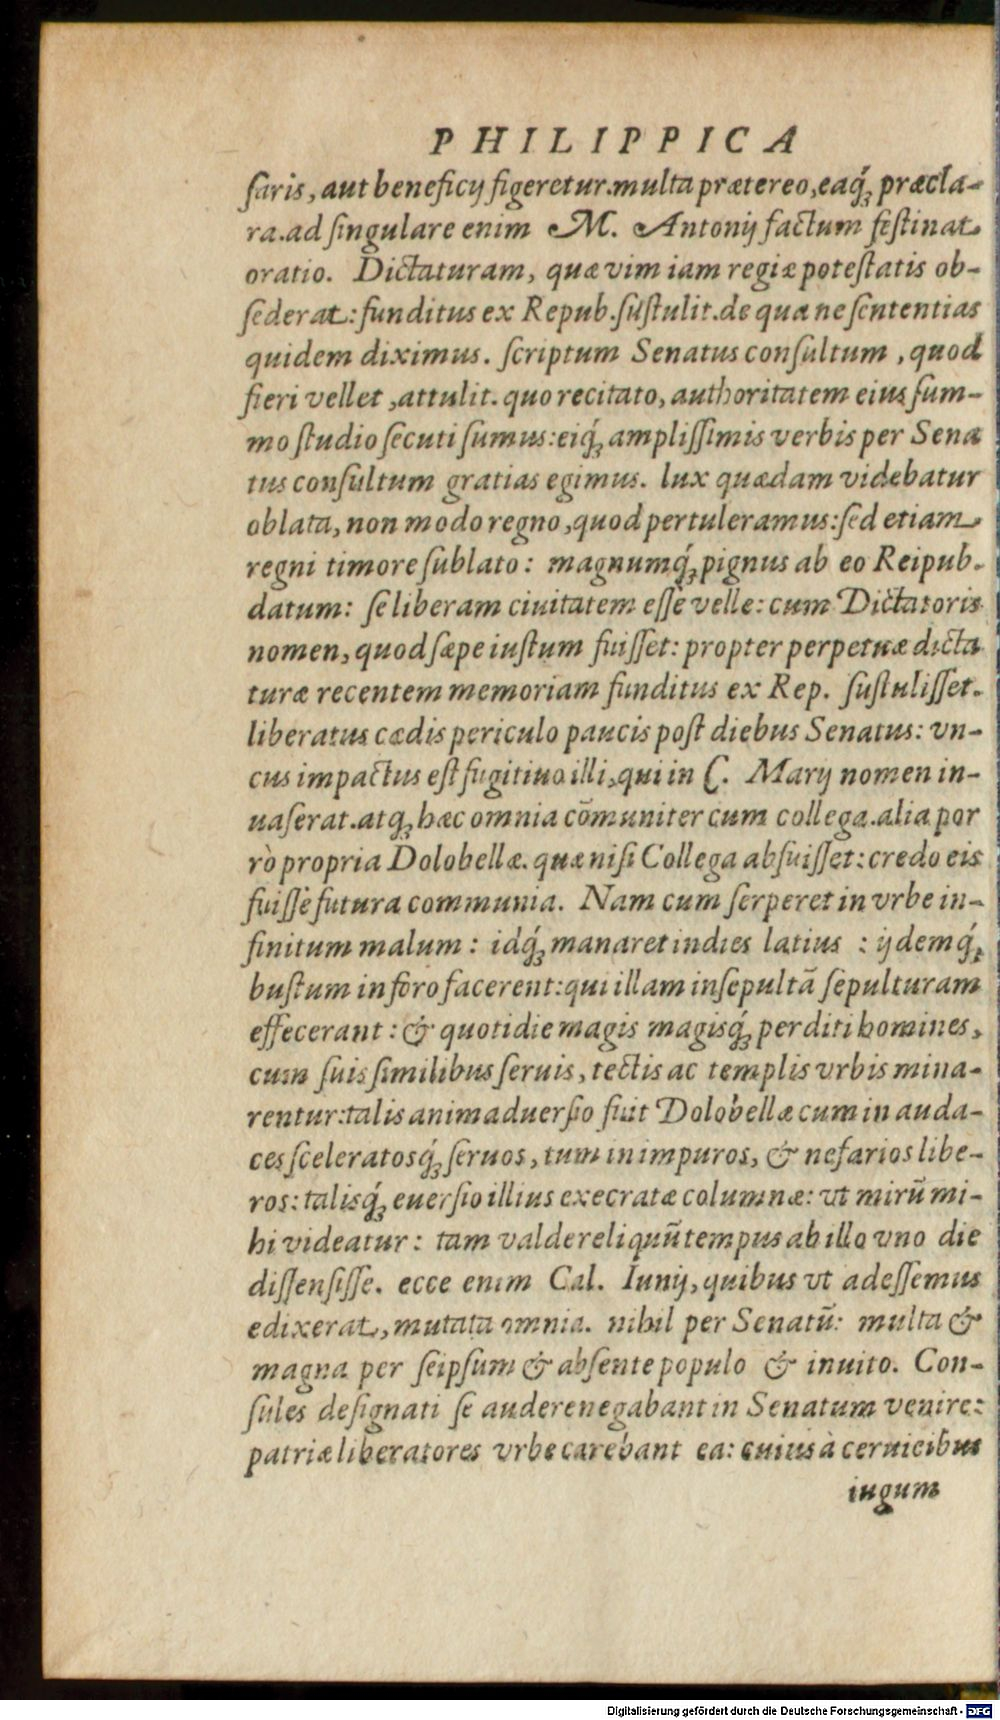 PHILIPPICA
ſaris, aut beneficij figeretur. multa prætereo, eaq́ꝫ præcla-
ra. ad ſingulare enim M. Antonij factum feſtinat
oratio. Dictaturam, quæ vim iam regiæ poteſtatis ob-
ſederat: funditus ex Repub. ſuſtulit. de qua ne ſententias
quidem diximus. ſcriptum Senatus conſultum, quod
fieri vellet, attulit. quo recitato, authoritatem eius ſum-
mo ſtudio ſecuti ſumus: eiq́ꝫ ampliſſimis verbis per Sena
tus conſultum gratias egimus. lux quædam videbatur
oblata, non modo regno, quod pertuleramus: ſed etiam
regni timore ſublato: magnumq́ꝫ pignus ab eo Reipub.
datum: ſe liberam ciuitatem eſſe velle: cum Dictatoris
nomen, quod ſæpe iuſtum fuiſſet: propter perpetuæ dicta
turæ recentem memoriam funditus ex Rep. ſuſtuliſſet.
liberatus cædis periculo paucis poſt diebus Senatus: vn-
cus impactus eſt fugitiuo illi, qui in C. Marij nomen in-
uaſerat. atqꝫ hæc omnia cōmuniter cum collega. alia por
rò propria Dolobellæ. quæ niſi Collega abfuiſſet: credo eis
fuiſſe futura communia. Nam cum ſerperet in vrbe in-
finitum malum: idq́ꝫ manaret indies latius: ijdemq́ꝫ
buſtum in foro facerent: qui illam inſepultā ſepulturam
effecerant: & quotidie magis magisq́ꝫ perditi homines,
cum ſuis ſimilibus ſeruis, tectis ac templis vrbis mina-
rentur: talis animaduerſio fuit Dolobellæ cum in auda-
ces ſceleratosq́ꝫ ſeruos, tum in impuros, & nefarios libe-
ros: talisq́ꝫ euerſio illius execratæ columnæ: vt mirū mi-
hi videatur: tam valde reliquū tempus ab illo vno die
diſſenſiſſe. ecce enim Cal. Iunij, quibus vt adeſſemus
edixerat, mutata omnia. nihil per Senatū: multa &
magna per ſeipſum & abſente populo & inuito. Con-
ſules deſignati ſe audere negabant in Senatum venire:
patriæ liberatores vrbe carebant ea: cuius à ceruicibus
iugum
Digitalisierung gefördert durch die Deutsche Forschungsgemeinschaft - DFG